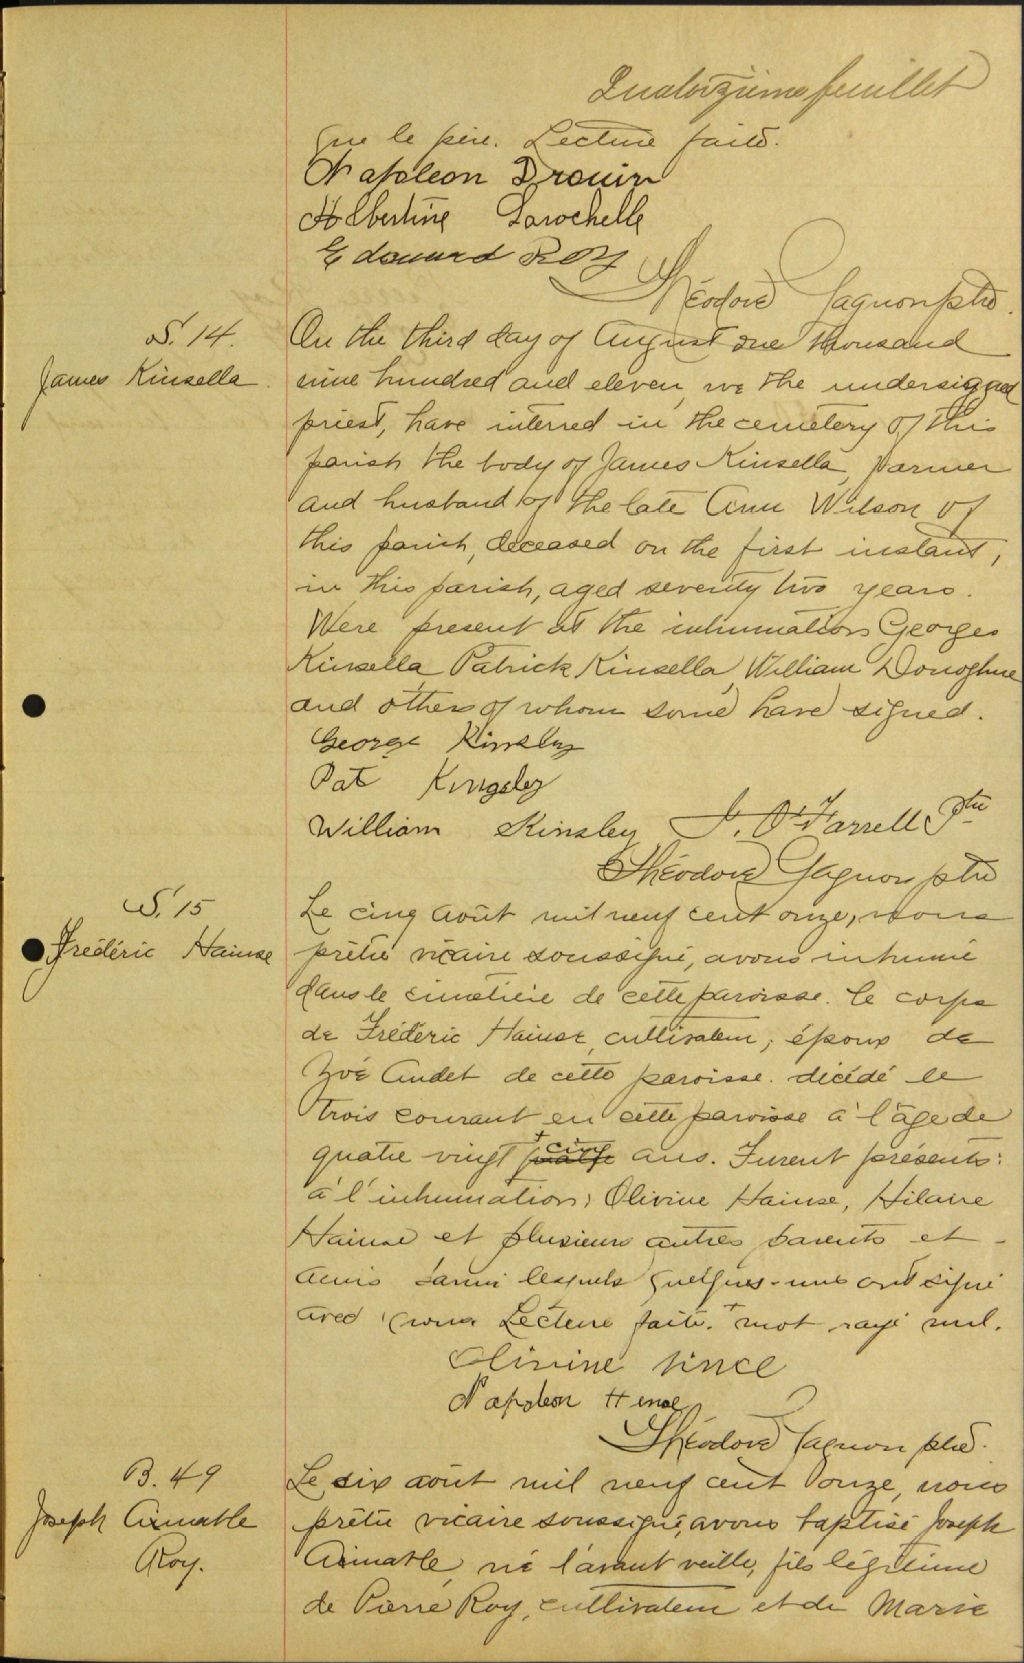 Quatorzième feuillet
que le père. Lecture faite.
Napoleon Drouin
Albertine Larochelle
Edouard Roy
Théodore Gagnon ptre.
S. 14.
James Kinsella
On the third day of August one thousand
nine hundred and eleven, we the undersigned
priest, have interred in the cemetery of this
parish the body of James Kinsella, farmer
and husband of the late Ann Wilson of
this parish, deceased on the first instant,
in this parish, aged seventy two years.
Were present at the inhumation Georges
Kinsella, Patrick Kinsella, William Donoghue
and others of whom some have signed.
George Kinsley
Pat Kingsley
William Kinsley J. O'Farrell Ptre
Théodore Gagnon ptre
S. 15
Frédéric Hainse
Le cinq août mil neuf cent onze, nous
prêtre vicaire soussigné, avons inhumé
dans le cimetière de cette paroisse. le corps
de Frédéric Hainse, cultivateur, époux de
Zoé Audet de cette paroisse. décédé le
trois courant en cette paroisse à l'âge de
quatre vingt + cinq quatre ans. Furent présents:
à l'inhumation, Olivine Hainse, Hilaire
Hainse et plusieurs autres parents et -
amis parmi lesquels quelques-uns ont signé
avec nous Lecture faite. + mot rayé nul.
Olivine hince
Napoleon Hense
Théodore Gagnon ptre.
B. 49
Joseph Aimable
Roy.
Le six août mil neuf cent onze, nous
prêtre vicaire soussigné, avons baptisé Joseph
Aimable, né l'avant veille, fils légitime
de Pierre Roy, cultivateur et de Marie